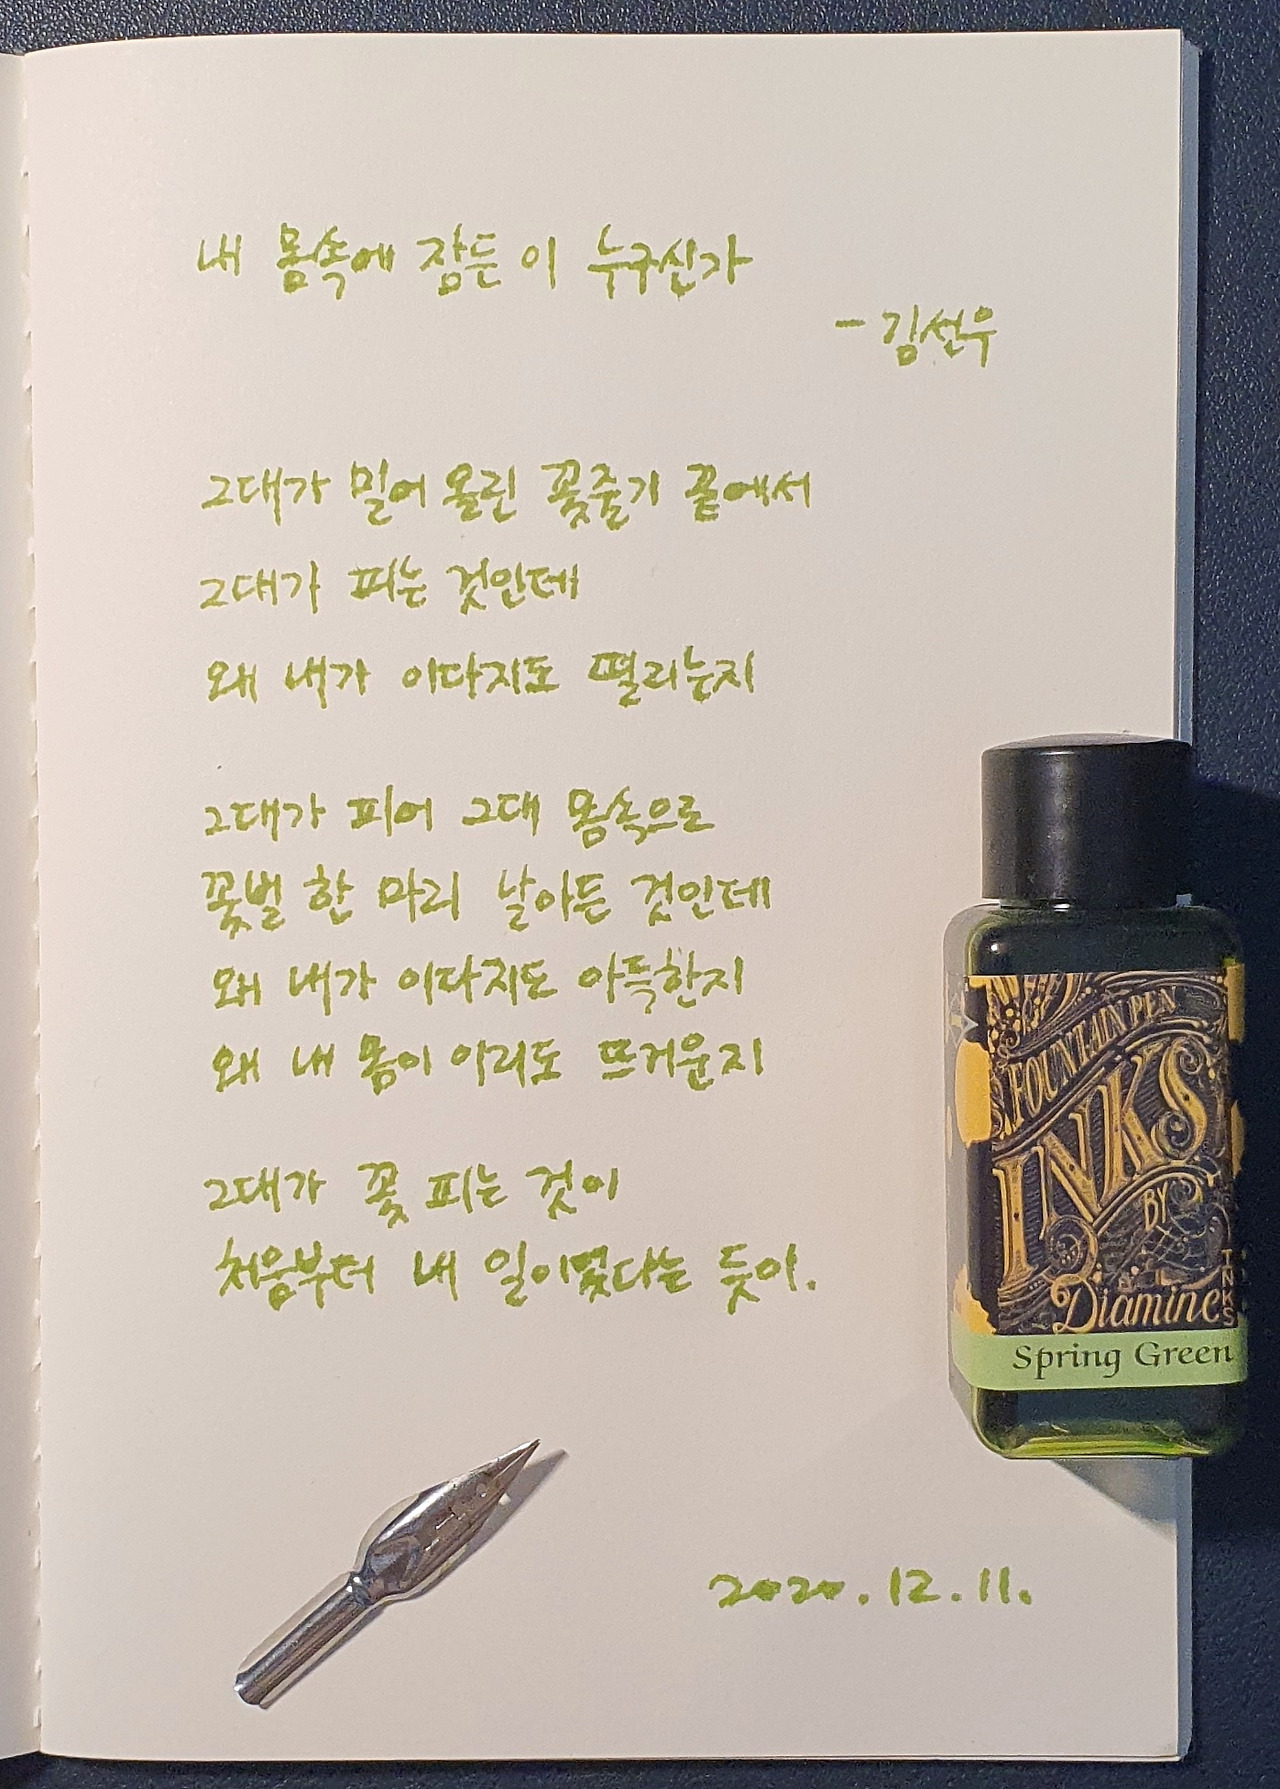 내 몸속에 잠든 이 누구신가
- 김선우
그대가 밀어 올린 꽃줄기 끝에서
그대가 피는 것인데
왜 내가 이다지도 떨리는지
그대가 피어 그대 몸속으로
꽃벌 한 마리 날아든 것인데
왜 내가 이다지도 아득한지
왜 내 몸이 이리도 뜨거운지
그대가 꽃 피는 것이
처음부터 내 일이었다는 듯이.
FOUNTAIN PEN
INKS
BY
Diamine
INKS
Spring Green
2020.12.11.